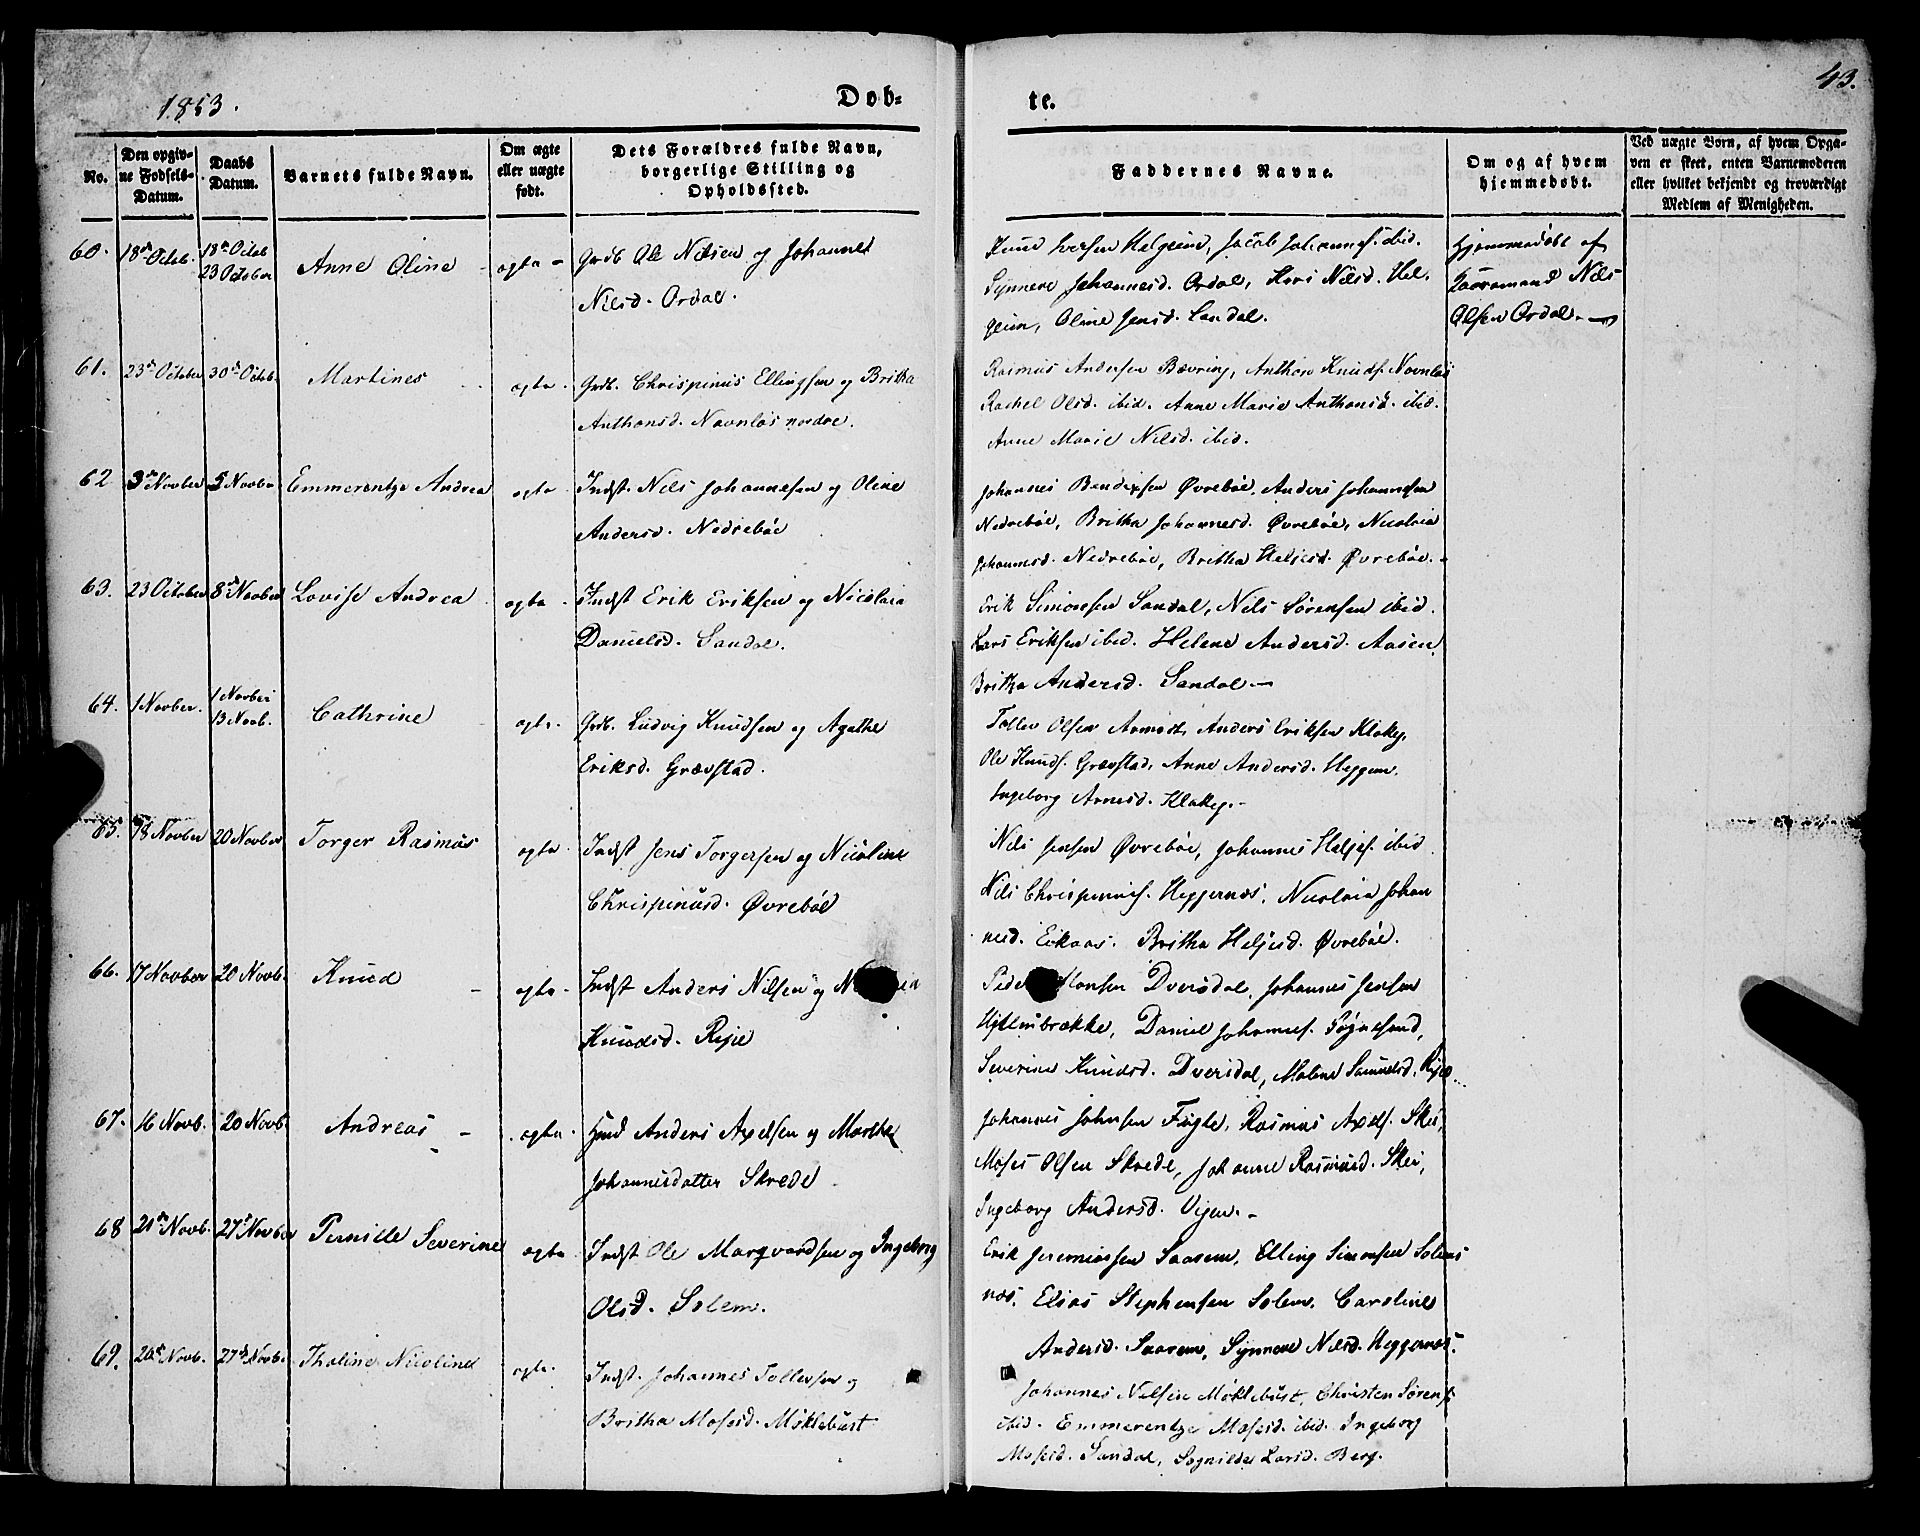 1853.
Døb-
te.
43.
No.
Den opgiv-
ne Fødsels-
Datum.
Daabs
Datum.
Barnets fulde Navn.
Om ægte
eller uægte
født.
Dets Forældres fulde Navn,
borgerlige Stilling og
Opholdssted.
Faddernes Navne.
Om og af hvem
hjemmedøbt.
Ved uægte Børn, af hvem Opga-
ven er skeet, enten Barnemoderen
eller hvilket bekjendt og troværdigt
Medlem af Menigheden.
60. 18de Octob. 18de Octob
23 October
Anne Oline
ægte
Grdb Ole Nilsen og Johanne
Nilsd. Ordal.
Knud Iversen Helgeim, Jacob Johannes. ibid.
Synneve Johannesd. Ordal, Kari Nilsd. Hel-
geim, Oline Jensd. Sandal.
Hjemmedøbt af
Kaaremand Nils
Olsen Ordal.
61. 23de October 30de Octob. Martines
ægte
Grdb. Chrispinus Ellingsen og Britha
Anthonsd. Navnløs nordre.
Rasmus Andersen Bævring, Anthon Knuds. Navnløs
Rachel Olsd. ibid. Anne Marie Anthonsd. ibid.
Anne Marie Nilsd. ibid.
62 3de Novber 5 Novber Emmerentze Andrea
ægte
Indst. Nils Johannesen og Oline
Andersd. Nedrebøe
Johannes Bendixsen Øvrebøe, Anders Johannesen
Nedrebøe, Britha Johannesd. Øvrebøe, Nicolaia
Johannesd. Nedrebøe, Britha Heljesd. Øvrebøe.
63. 23 October 8de Novber Lovise Andrea
ægte
Indst Erik Eriksen og Nicolaia
Danielsd. Sandal.
Erik Simonsen Sandal, Nils Sørensen ibid.
Lars Eriksen ibid. Helene Andersd. Aasen
Britha Andersd. Sandal
64. 1 Novber. 1 Novber
13 Novb.
Cathrine
ægte.
Grdb. Ludvig Knudsen og Agathe
Eriksd. Grævstad.
Tollev Olsen Aamot, Anders Eriksen Klakeg,
Ole Knuds. Grævstad, Anne Andersd. Heggem.
Ingeborg Arnesd. Klakeg.
65. 18 Novber 20 Novber Torger Rasmus
ægte
Indst Jens Torgersen og Nicoline
Chrispinusd. Øvrebøe
Nils Jensen Øvrebøe, Johannes Heljes. ibid
Nils Chrispinus. Heggernæs, Nicolaia Johan
nesd. Eikaas. Britha Heljesd. Øvrebøe.
66. 17 Novber 20 Novb. Knud
ægte
Indst Anders Nilsen og
Knudsd. Ripe
Hansen Dversdal, Johannes Jensen
Hjelmbrække, Daniel Johannes. Søgnesand,
Severine Knudsd. Dversdal, Malene Samuelsd. Ripe
67. 16 Novb. 20 Novb. Andreas
ægte
Hmd Anders Axelsen og Marthe
Johannesdatter Skrede
Johannes Johnsen Fugle, Rasmus Axels. Skei,
Moses Olsen Skrede, Johanne Rasmusd. Skei,
Ingeborg Andersd. Vigen.
68 21de Novb. 27de Novber Pernille Severine
ægte
Indst Ole Marqvardsen og Ingeborg
Olsd. Solem.
Erik Jeremiassen Saasem, Elling Simonsen Solem
næs, Elias Stephensen Solem, Caroline
Andersd. Saasem, Synneve Nilsd. Heggernæs.
69. 26de Novb. 27de Novb. Thaline Nicoline
ægte.
Indst. Johannes Tollevsen og
Britha Mosesd. Møklebust
Johannes Nilsen Møklebust, Christen Sørens.
ibid. Emmerentze Mosesd. ibid. Ingeborg
Mosesd. Sandal, Sognilde Larsd. Berg.